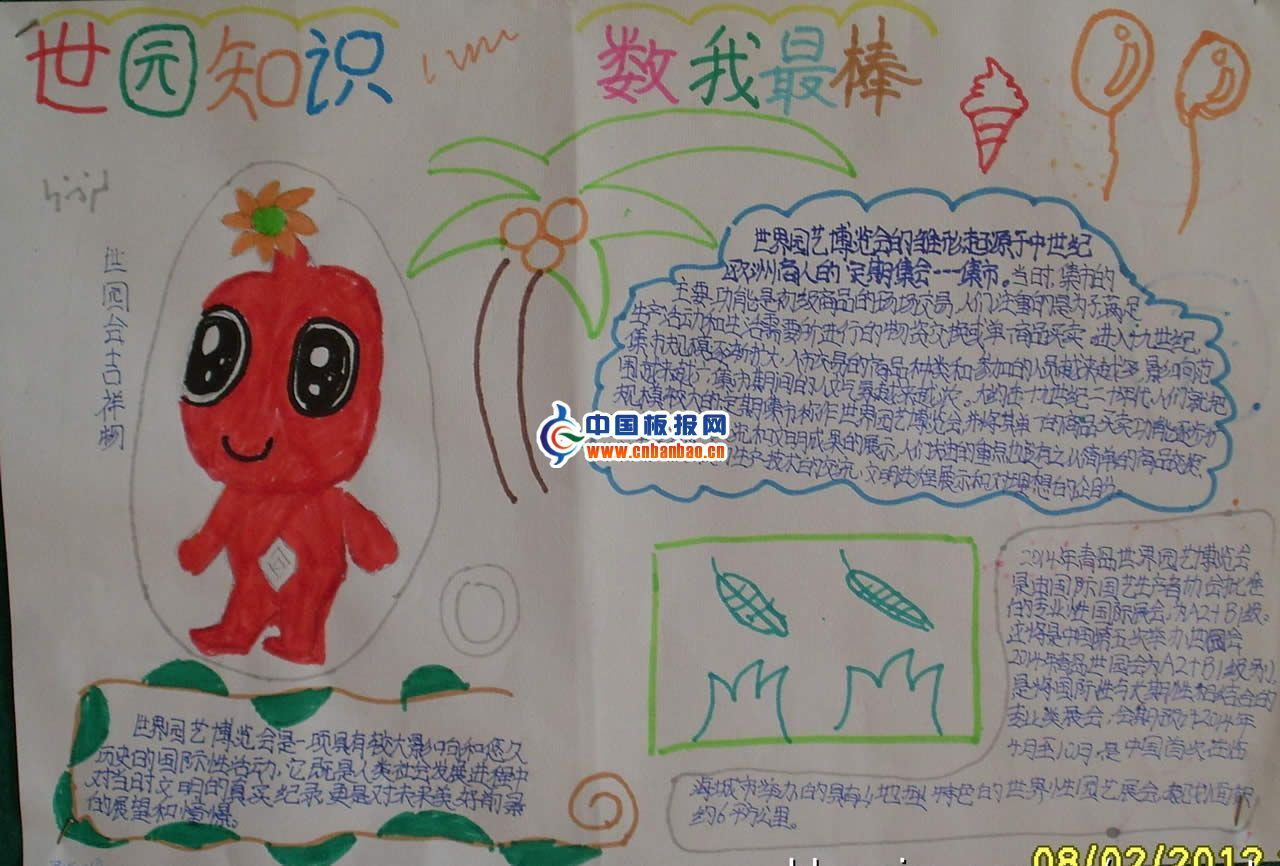 世园知识
数我最棒
世园会吉祥物
世界园艺博览会的雏形来还原于中世纪
欧洲商人的定期集会---集市。当日时,集市的
主要功能是初级商品的场场交易,人们注重的是为了满足
生产活动和生活需要所进行的物资交换或单一商品买卖。进入十九世纪,
集市规模逐渐扩大,入市交易的商品种类和参加的人员越来越多,影响范
围越来越广,集市期间的人文气氛越来越浓。大约在十九世纪二十年代,人们就把
规模较大的定期集市称作世界园艺博览会,并将其单一的商品买卖功能逐步为
和文明成果的展示,人们
生产技术的交流,文明进程展示和对理想的企盼。
中国板报网
www.cnbanbao.cn
2014年青岛世界园艺博览会
是由国际园艺生产者协会批准
的专业性国际展会,为A2+B1级。
还将是中国第五次举办世园会
2014年青岛世园会为A2+B1级别,
是将国际性与大期性相结合的
类展会,会期预计2014年
4月至10月,是中国首次在临
海城市举办的具有山地型特色的世界性园艺展会,规划面积
约6平方公里。
世界园艺博览会是一项具有较大影响和悠久
历史的国际性活动,它既是人类社会发展进程中
对当时文明的真实纪录,更是对未来美好前景
的展望和憧憬。
08/02/2012